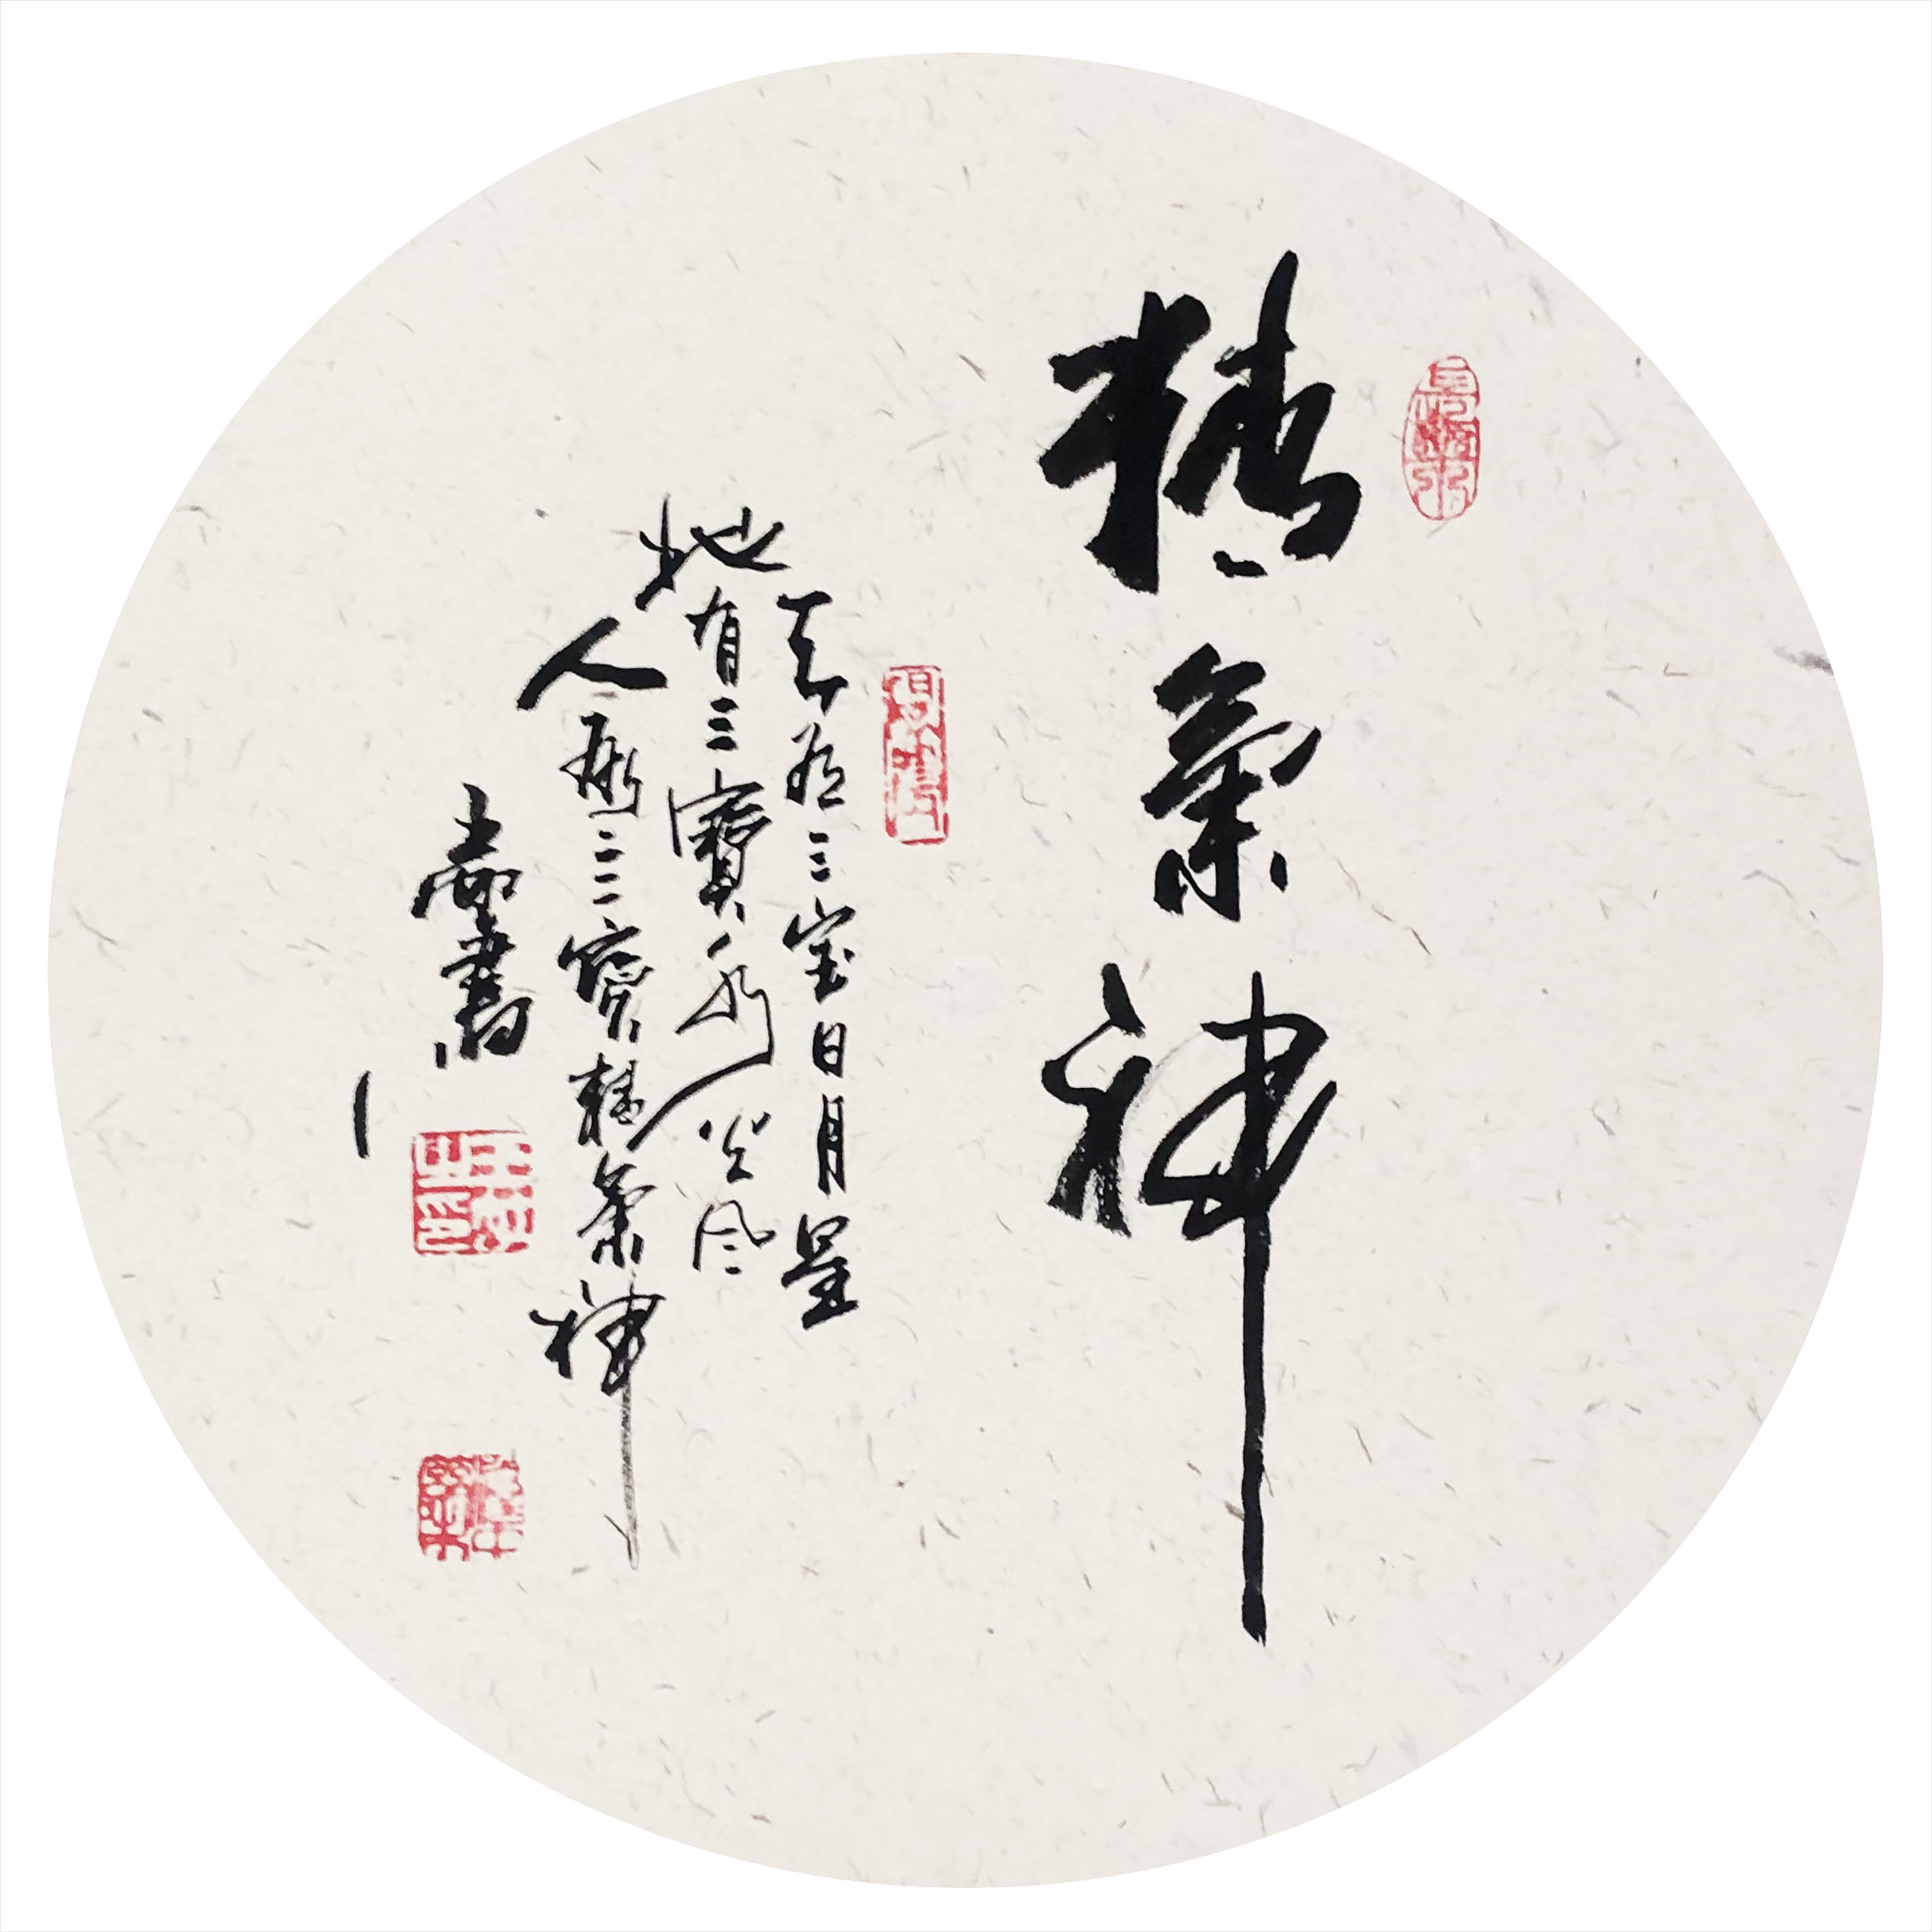 精氣神
天有三宝日月星
地有三寶水火风
人有三寶精氣神
書